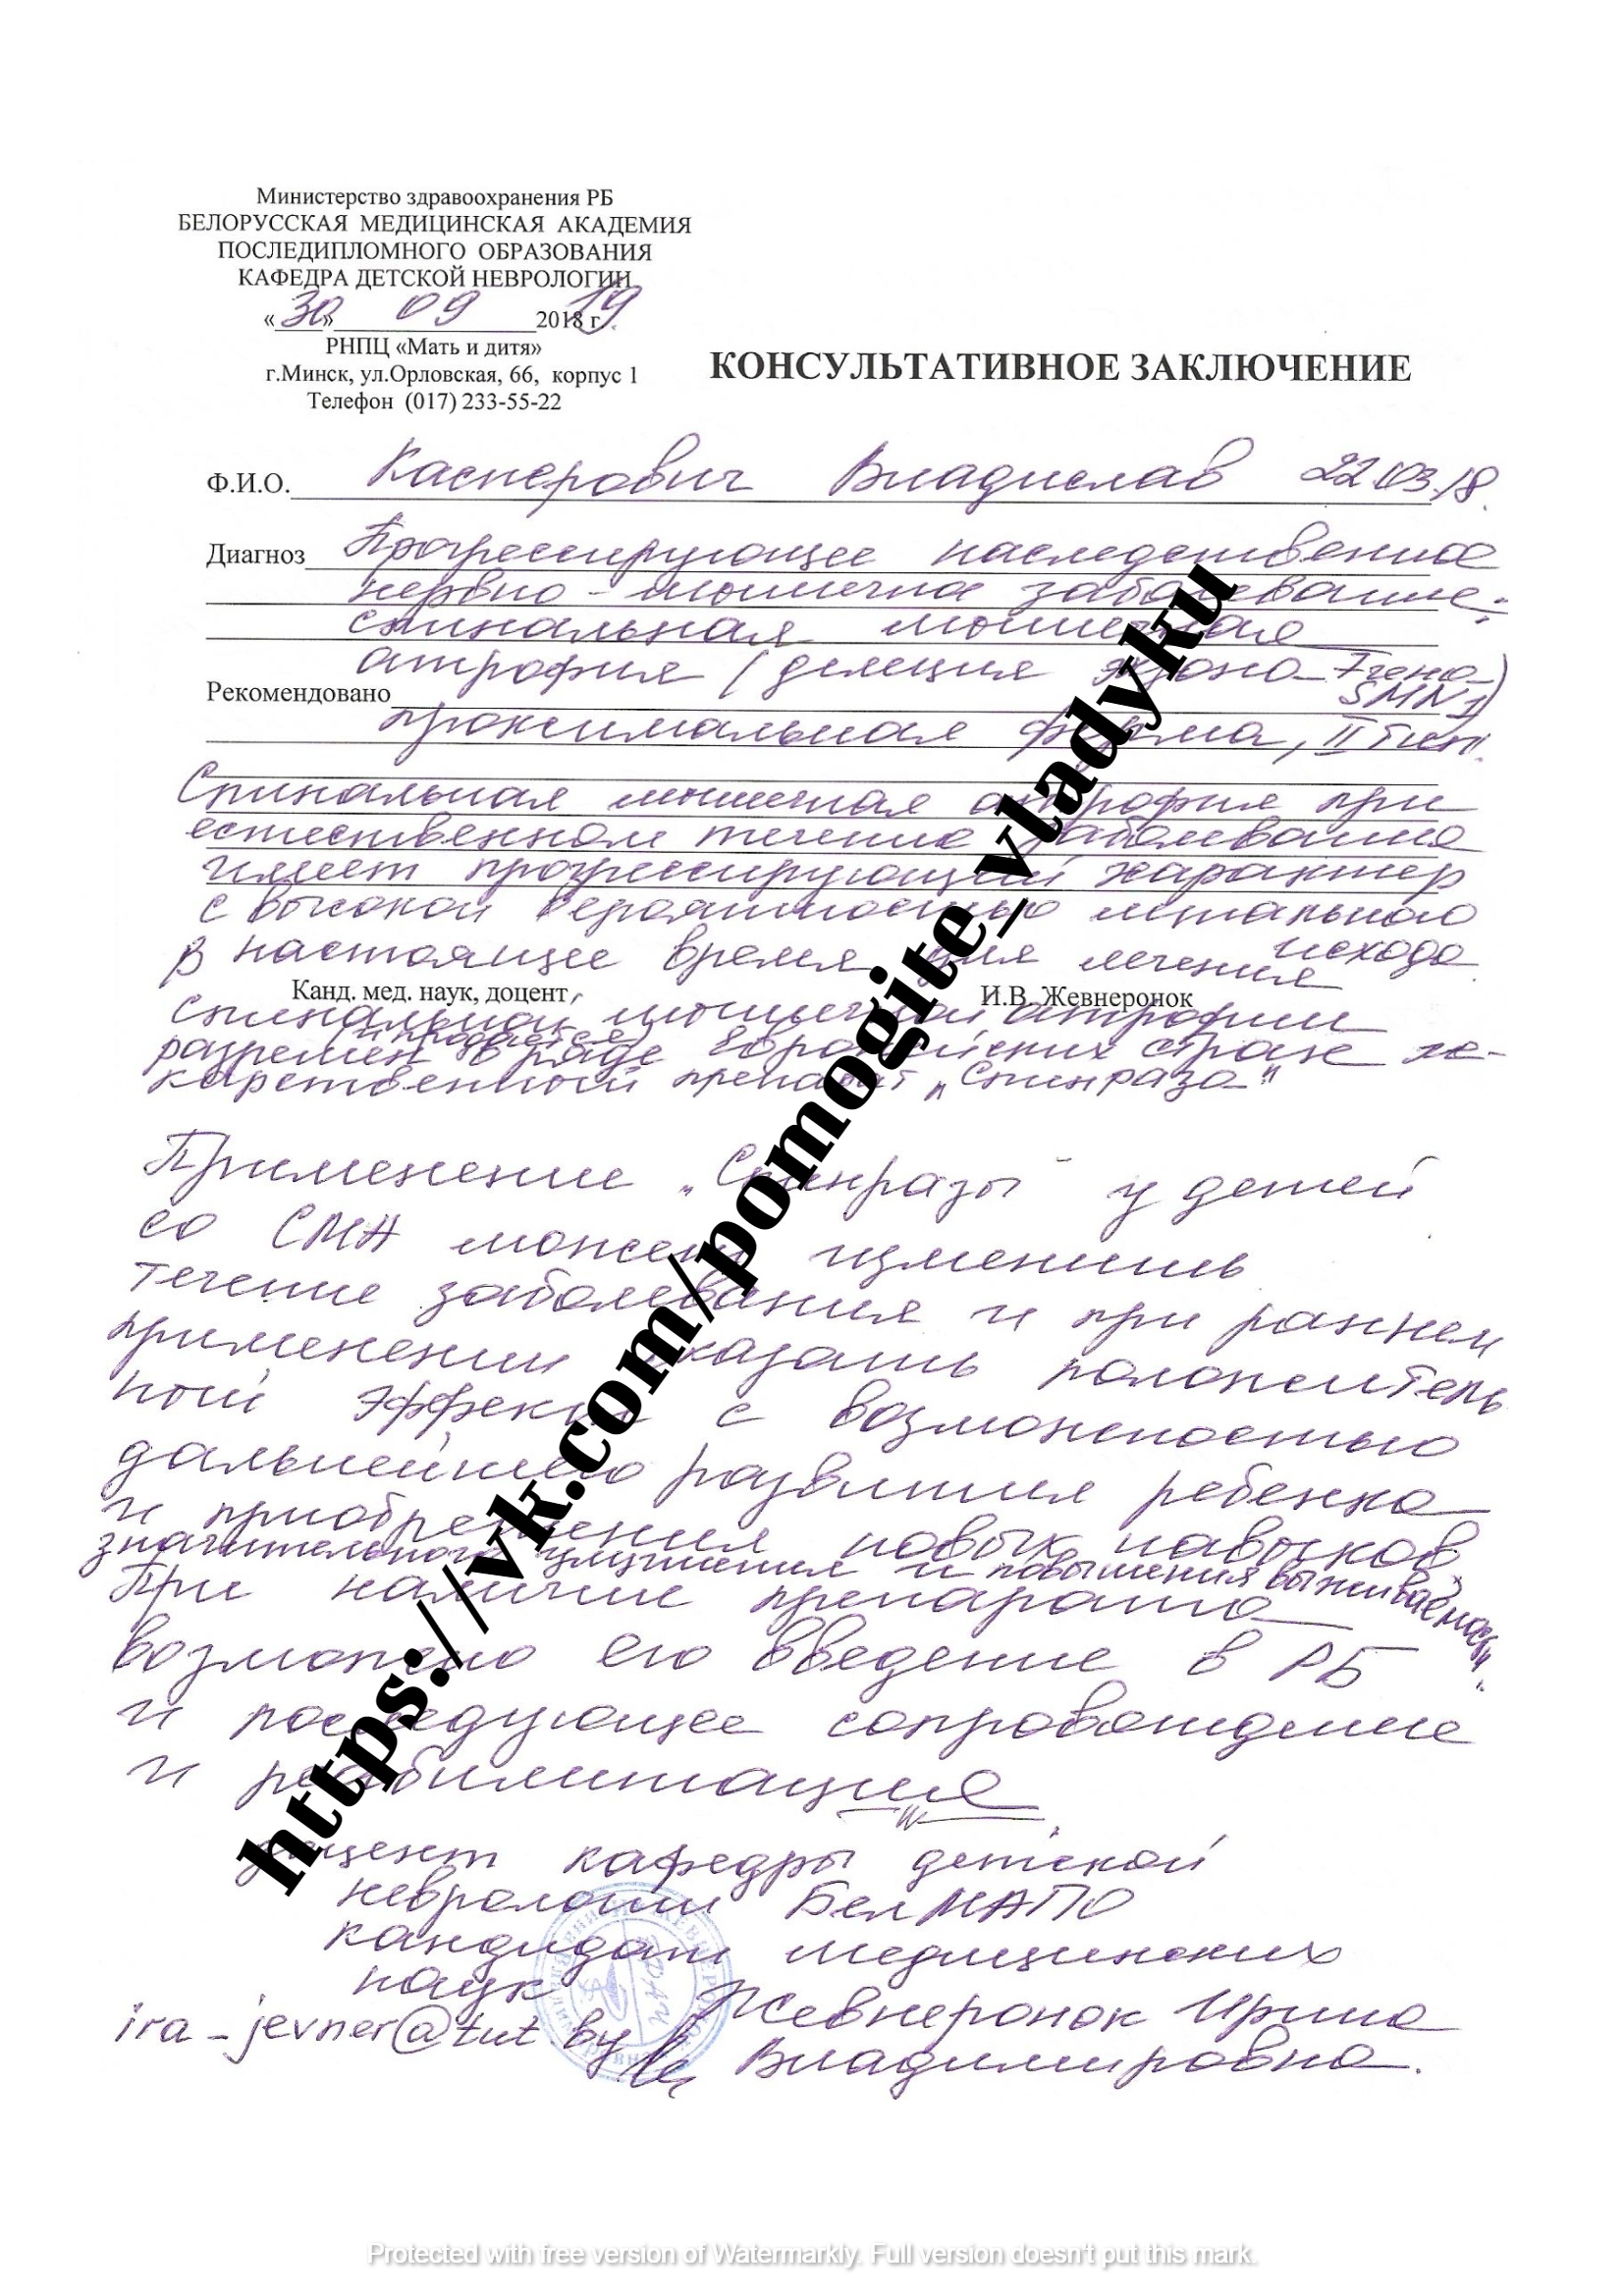 Министерство здравоохранения РБ
БЕЛОРУССКАЯ МЕДИЦИНСКАЯ АКАДЕМИЯ
ПОСЛЕДИПЛОМНОГО ОБРАЗОВАНИЯ
КАФЕДРА ДЕТСКОЙ НЕВРОЛОГИИ
«30» 09 2019 г.
РНПЦ «Мать и дитя»
г.Минск, ул.Орловская, 66, корпус 1
Телефон (017) 233-55-22
КОНСУЛЬТАТИВНОЕ ЗАКЛЮЧЕНИЕ
Ф.И.О. Касперович Владислав 22.03.18.
Диагноз Прогрессирующее наследственное
нервно-мышечное заболевание:
спинальная мышечная
атрофия (делеция экзона 7 гена
SMN1)
Рекомендовано
проксимальная форма, II тип.
Спинальная мышечная атрофия при
естественном течении заболевания
имеет прогрессирующий характер
с высокой вероятностью летального
исхода
В настоящее время для лечения
Канд. мед. наук, доцент И.В. Жевнеронок
спинальной мышечной атрофии
(и продается)
разрешен в ряде Европейских стран ле-
карственный препарат „Спинраза"
Применение „Спинразы" у детей
со СМА может изменить
течение заболевания и при раннем
применении оказать положитель
ный эффект с возможностью
дальнейшего развития ребенка
и приобретения новых навыков,
значительного улучшения и повышения выживаемости.
При наличие препарата
возможно его введение в РБ
и последующее сопровождение
и реабилитация
доцент кафедры детской
неврологии БелМАПО
кандидат медицинских
наук Жевнеронок Ирина
ira_jevner@tut.by Владимировна.
https://vk.com/pomogite_vladyku
Protected with free version of Watermarkly. Full version doesn't put this mark.